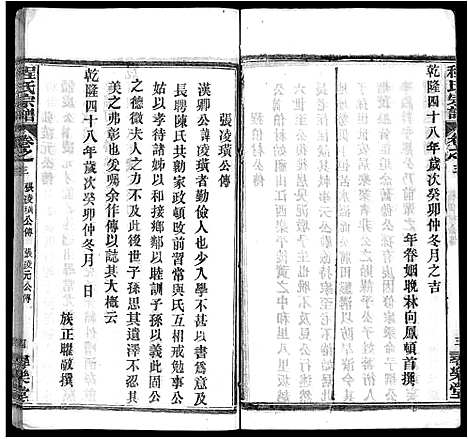 程氏宗譜
乾隆四十八年歲次癸卯仲冬月之吉
年眷姻晚林向鳳頓首撰
三
尋樂堂
張凌璜公傳
漢卿公諱凌璜者勤儉人也少入學不甚以書為意及
長聘陳氏共勷家政頓改前習常與氏互相戒勉事公
姑以孝待諸姊以和接鄉鄰以睦訓子孫以義此固公
之德徵夫人之力不及此後世子孫思其遺澤不忘其
美之弗彰也爰囑余作傳以誌其大概云
族正聯敬撰
乾隆四十八年歲次癸卯仲冬月 日
程氏宗譜
卷之三
張凌璜公傳 張凌元公傳
四
尋樂堂